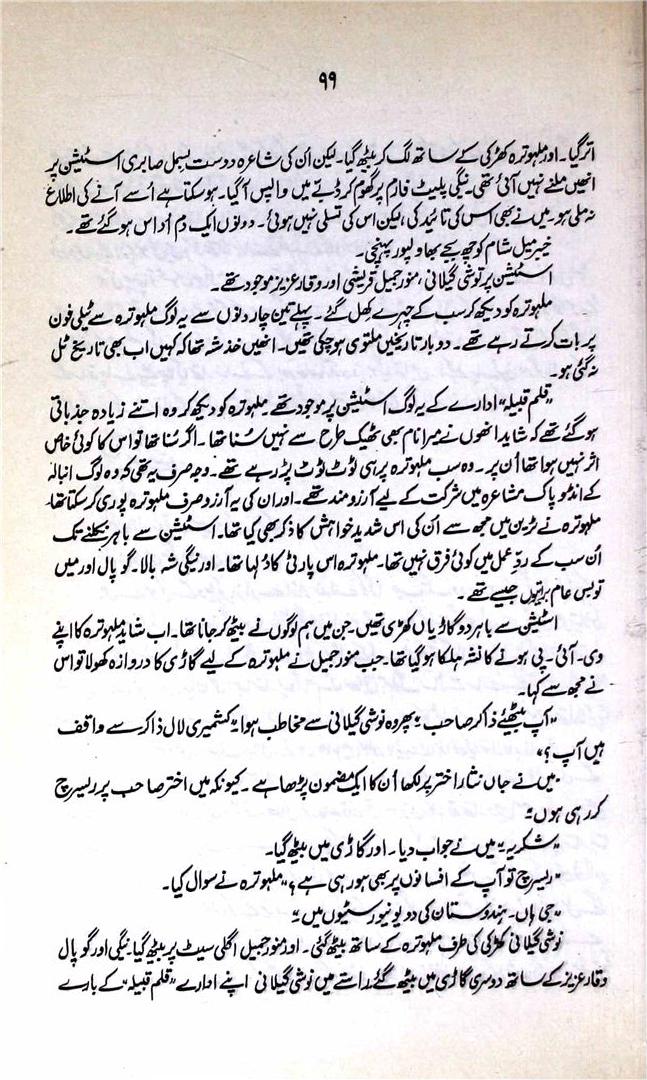 ۹۹
اتر گیا۔ اور ملہوترہ کھڑکی کے ساتھ لگ کر بیٹھ گیا۔ لیکن اُن کی شاعرہ دوست بسمل صابری اسٹیشن پر
انھیں ملنے نہیں آئی تھی۔ نیگی پلیٹ فارم پر گھوم کر ڈبے میں واپس آ گیا۔ ہو سکتا ہے اُسے آنے کی اطلاع
نہ ملی ہو۔ میں نے بھی اس کی تائید کی، لیکن اس کی تسلی نہیں ہوئی۔ دونوں ایک دم اُداس ہو گئے تھے۔
خیبر میل شام کو چھ بجے بھاولپور پہنچی۔
اسٹیشن پر نوشی گیلانی، منور جمیل قریشی اور وقار عزیز موجود تھے۔
ملہوترہ کو دیکھ کر سب کے چہرے کھل گئے۔ پہلے تین چار دنوں سے یہ لوگ ملہوترہ سے ٹیلی فون
پر بات کرتے رہے تھے۔ دو بار تاریخیں ملتوی ہو چکی تھیں۔ انھیں خدشہ تھا کہ کہیں اب بھی تاریخ ٹل
نہ گئی ہو۔
"قلم قبیلہ" ادارے کے یہ لوگ اسٹیشن پر موجود تھے ملہوترہ کو دیکھ کر وہ اتنے زیادہ جذباتی
ہو گئے تھے کہ شاید انھوں نے میرا نام بھی ٹھیک طرح سے نہیں سُنا تھا۔ اگر سُنا تھا تو اس کا کوئی خاص
اثر نہیں ہوا تھا اُن پر۔ وہ سب ملہوترہ پر ہی ٹوٹ ٹوٹ پڑ رہے تھے۔ وجہ صرف یہ تھی کہ وہ لوگ انبالہ
کے انڈو پاک مشاعرہ میں شرکت کے لیے آرزو مند تھے۔ اور ان کی یہ آرزو صرف ملہوترہ پوری کر سکتا تھا۔
ملہوترہ نے ٹرین میں مجھ سے اُن کی اس شدید خواہش کا ذکر بھی کیا تھا۔ اسٹیشن سے باہر نکلنے تک
اُن سب کے ردِّ عمل میں کوئی فرق نہیں تھا۔ ملہوترہ اس پارٹی کا دُلہا تھا۔ اور نیگی شہ بالا۔ گوپال اور میں
تو بس عام براتیوں جیسے تھے۔
اسٹیشن سے باہر دو گاڑیاں کھڑی تھیں۔ جن میں ہم لوگوں نے بیٹھ کر جانا تھا۔ اب شاید ملہوترہ کا اپنے
وی۔ آئی۔ پی ہونے کا نشہ ہلکا ہو گیا تھا۔ جب منور جمیل نے ملہوترہ کے لیے گاڑی کا دروازہ کھولا تو اس
نے مجھ سے کہا۔
"آپ بیٹھئے ذاکر صاحب" پھر وہ نوشی گیلانی سے مخاطب ہوا۔ "کشمیری لال ذاکر سے واقف
ہیں آپ؟"
"میں نے جاں نثار اختر پر لکھا اُن کا ایک مضمون پڑھا ہے۔ کیونکہ میں اختر صاحب پر ریسرچ
کر رہی ہوں۔"
"شکریہ" میں نے جواب دیا۔ اور گاڑی میں بیٹھ گیا۔
"ریسرچ تو آپ کے افسانوں پر بھی ہو رہی ہے؟" ملہوترہ نے سوال کیا۔
"جی ہاں۔ ہندوستان کی دو یونیورسٹیوں میں۔"
نوشی گیلانی کھڑکی کی طرف ملہوترہ کے ساتھ بیٹھ گئی۔ اور منور جمیل اگلی سیٹ پر بیٹھ گیا۔ نیگی اور گوپال
وقار عزیز کے ساتھ دوسری گاڑی میں بیٹھ گئے۔ راستے میں نوشی گیلانی اپنے ادارے "قلم قبیلہ" کے بارے